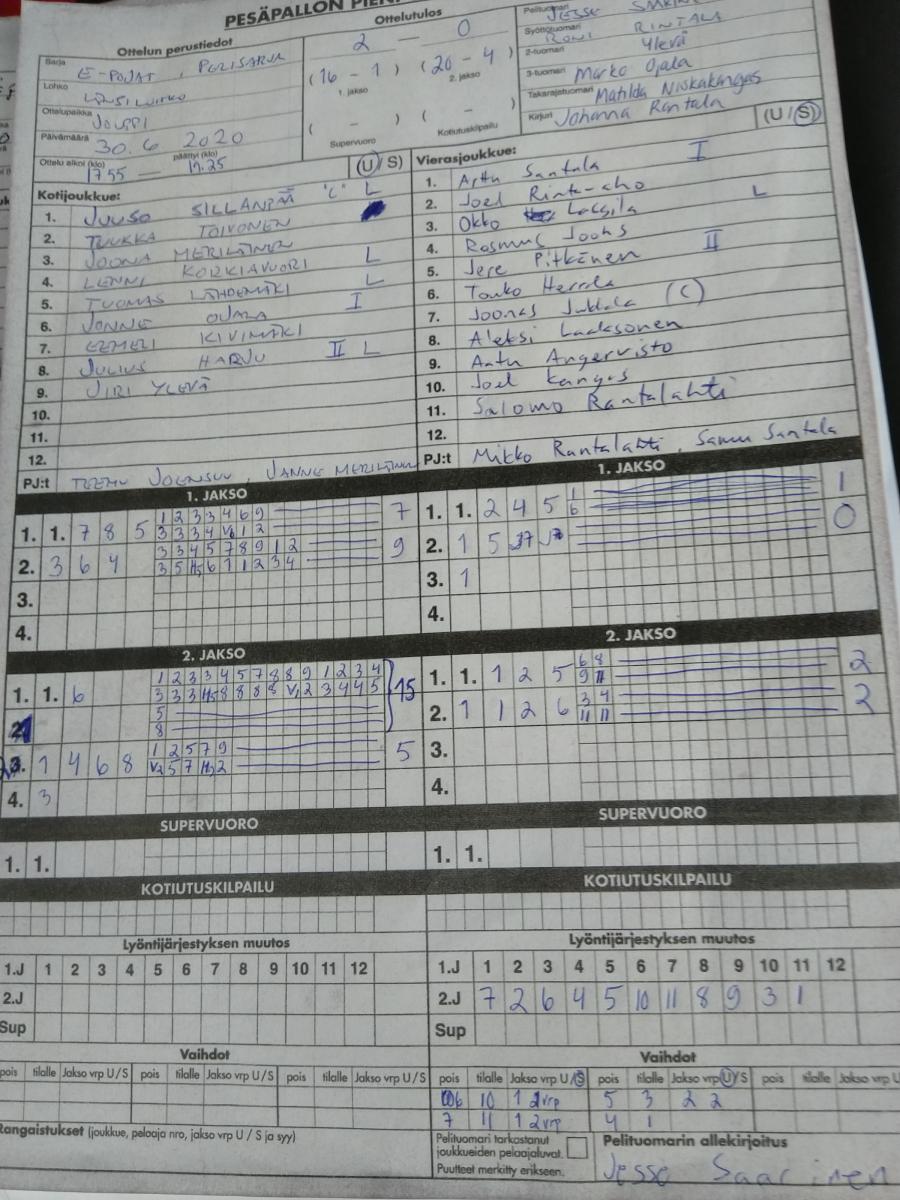 PESÄPALLON
Ottelun perustiedot
Sarja E-POJAT, PERUSSARJA
Lohko LÄNSILOHKO
Ottelupaikka JOUPPI
Päivämäärä 30.6 2020
Ottelu alkoi (klo) 1755 — päättyi (klo) 19.25
Ottelutulos
2 — 0
(16 - 1) (20 - 4)
1. jakso 2. jakso
( - ) ( - )
Supervuoro Kotiutuskilpailu
Pelituomari JESSE
Syöttötuomari RONI RINTALA
2-tuomari Ylevä
3-tuomari Marko Ojala
Takarajatuomari Matilda Niskakangas
Kirjuri Johanna Rantala
Kotijoukkue: (U/S)
1. JUUSO SILLANPÄÄ "C" L
2. TUUKKA TOIVONEN
3. JOONA MERILÄINEN
4. LENNI KORKIAVUORI L
5. TUOMAS LÄHDEMÄKI L
6. JONNE OJALA I
7. EEMELI KIVIMÄKI
8. JULIUS HARJU II L
9. JIRI YLEVÄ
10.
11.
12.
PJ:t TEEMU JOENSUU, JANNE MERILÄINEN
Vierasjoukkue: (U/S)
1. Arttu Santala I
2. Joel Rinta-aho
3. Okko Lassila L
4. Rasmus
5. Jere Pitkänen II
6. Touko Herrala
7. Joonas Jukkala (C)
8. Aleksi Laaksonen
9. Aatu Angervisto
10. Joel Kangas
11. Salomo Rantalahti
12.
PJ:t Mikko Rantalahti, Samu Santala
1. JAKSO
1. 1. 7 8 5 1 2 3 3 4 6 9 7
3 3 3 4 1 2
2. 3 6 4 3 3 4 5 7 8 9 1 2 9
3 5 6 7 1 2 3 4
3.
4.
1. JAKSO
1. 1. 2 4 5 1 1
6
2. 1 5 0
3. 1
4.
2. JAKSO
1. 1. 6 1 2 3 3 4 5 7 8 8 9 1 2 3 4 15
3 3 3 8 8 8 8 2 3 4 4 5
5
8
3. 1 4 6 8 1 2 5 7 9 5
5 7 2
4. 3
2. JAKSO
1. 1. 1 2 5 6 8 2
9 11
2. 1 1 2 6 3 4 2
11 11
3.
4.
SUPERVUORO
1. 1.
SUPERVUORO
1. 1.
KOTIUTUSKILPAILU
KOTIUTUSKILPAILU
Lyöntijärjestyksen muutos
1.J 1 2 3 4 5 6 7 8 9 10 11 12
2.J
Sup
Lyöntijärjestyksen muutos
1.J 1 2 3 4 5 6 7 8 9 10 11 12
2.J 7 2 6 4 5 10 11 8 9 3 1
Sup
Vaihdot
pois tilalle Jakso vrp U/S pois tilalle Jakso vrp U/S pois tilalle Jakso vrp U/S
Vaihdot
pois tilalle Jakso vrp U/S pois tilalle Jakso vrp U/S pois tilalle Jakso vrp U
6 10 1 2vrp 5 3 2 2
7 11 1 2vrp 4 1
Rangaistukset (joukkue, pelaaja nro, jakso vrp U / S ja syy)
Pelituomari tarkastanut
joukkueiden pelaajaluvat.
Puutteet merkitty erikseen.
Pelituomarin allekirjoitus
Jesse Saarinen